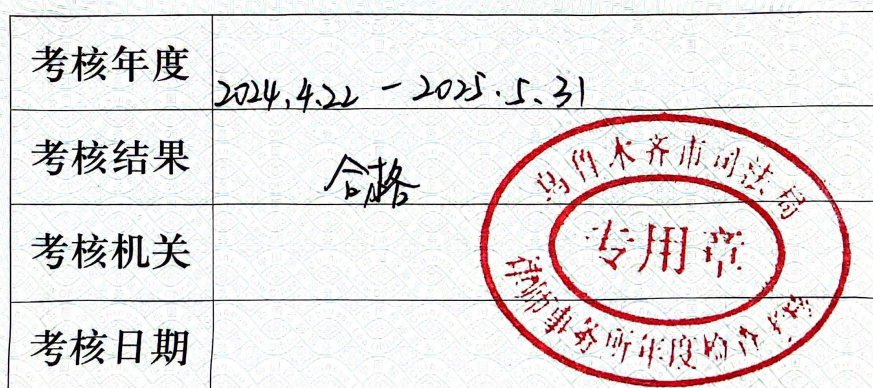 考核年度
2024.4.22 - 2025.5.31
考核结果
合格
考核机关
考核日期
乌鲁木齐市司法局
专用章
律师事务所年度检查考核